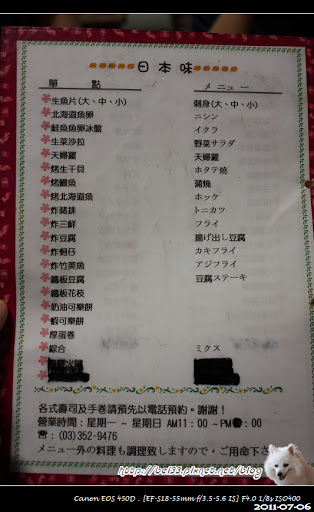 日本味
單 點 メニュー
生魚片(大、中、小) 刺身(大、中、小)
北海道魚卵 ニシン
鮭魚魚卵冰館 イクラ
生菜沙拉 野菜サラダ
天婦羅 天婦羅
烤生干貝 ホタテ燒
烤鰻魚 蒲燒
烤北海道魚 ホッケ
炸豬排 トニカツ
炸三鮮 フライ
炸豆腐 揚げ出し豆腐
炸蚵仔 カキフライ
炸竹莢魚 アジフライ
鐵板豆腐 豆腐ステーキ
鐵板花枝
奶油可樂餅
蝦可樂餅
厚蛋卷
綜合 ミクス
各式壽司及手卷請預先以電話預約。謝謝!
營業時間:星期一 ~ 星期日 AM11:00 ~ PM :00
☎:(03)352-9476
メニュー外の料理も調理致しますので、ご用命下さ
http://bel33.pixnet.net/blog
Canon EOS 450D . [EF-S18-55mm f/3.5-5.6 IS] F4.0 1/8s ISO400
2011-07-06